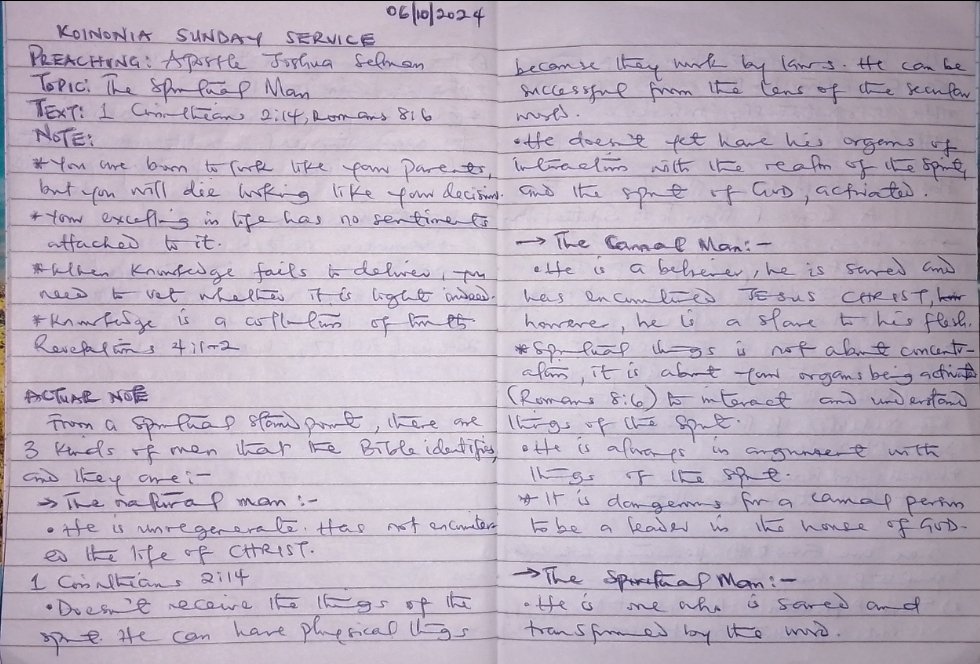 06/10/2024
KOINONIA SUNDAY SERVICE
PREACHING: Apostle Joshua Selman
TOPIC: The Spiritual Man
TEXT: 1 Corinthians 2:14, Romans 8:6
NOTE:
* You are born to look like your parents,
but you will die looking like your decision.
* Your excelling in life has no sentiments
attached to it.
* When knowledge fails to deliver, you
need to vet whether it is light indeed.
* Knowledge is a collection of truths
Revelations 4:1-2
ACTUAL NOTE
From a spiritual stand point, there are
3 kinds of men that the Bible identifies,
and they are:-
→ The natural man:-
• He is unregenerate. Has not encounter-
ed the life of CHRIST.
1 Corinthians 2:14
• Doesn't receive the things of the
spirit. He can have physical things
because they work by laws. He can be
successful from the lens of the secular
world.
• He doesn't yet have his organs of
interaction with the realm of the Spirit,
and the spirit of GOD, activated.
→ The Carnal Man:-
• He is a believer, he is saved and
has encountered JESUS CHRIST,
however, he is a slave to his flesh.
* Spiritual things is not about concentr-
ation, it is about your organs being activated
(Romans 8:6) to interact and understand
things of the Spirit.
• He is always in argument with
things of the spirit.
* It is dangerous for a carnal person
to be a leader in the house of GOD.
→ The Spiritual Man:-
• He is one who is saved and
transformed by the word.